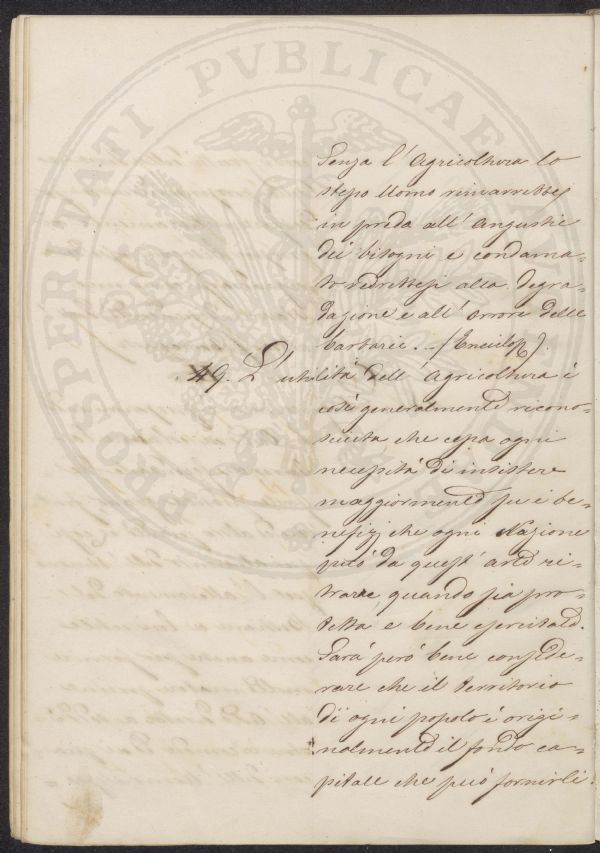 PROSPERITATI PVBLICAE
Senza l' Agricoltura lo
stesso Uomo rimarrebbe
in preda all' angustie
dei bisogni e condanna-
to vedrebbesi alla degra-
dazione e all' orrore delle
barbarie. - (Enciclop.).
49. L' utilità dell' Agricoltura è
così generalmente ricono-
sciuta che cessa ogni
necessità di insistere
maggiormente su i be-
nefizj che ogni Nazione
può da quest' arte ri-
trarre, quando sia pro-
tetta e bene esercitata.
Sarà però bene conside-
rare che il territorio
di ogni popolo è origi-
nalmente il fondo ca-
pitale che può fornirli